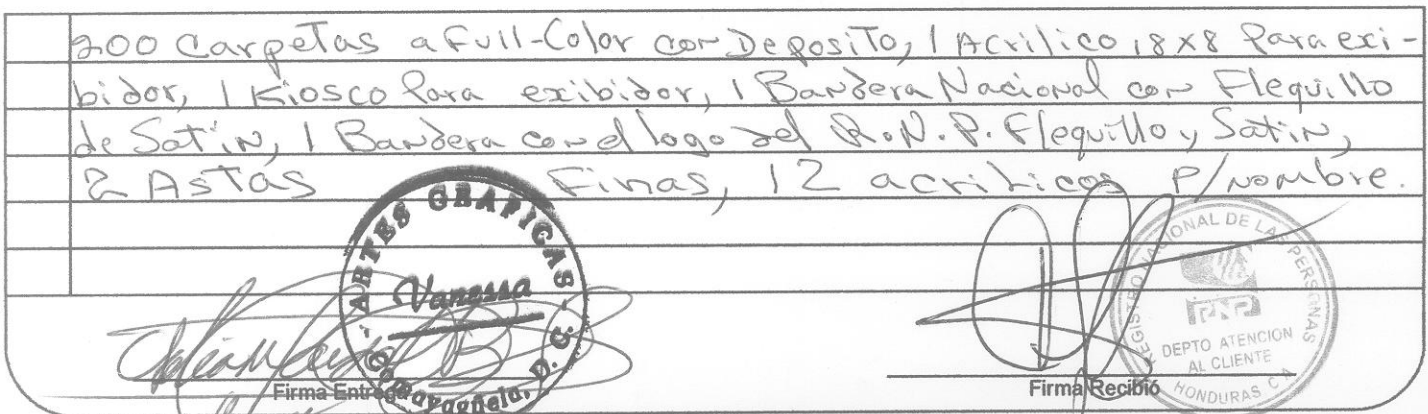 200 Carpetas a Full-Color con Deposito, 1 Acrilico 18x8 Para exi-
bidor, 1 Kiosco Para exibidor, 1 Bandera Nacional con Flequillo
de Satin, 1 Bandera con el logo del R.N.P. Flequillo y Satin,
2 Astas Finas, 12 acrilicos P/nombre.
ARTES GRAFICAS
Vanessa
Comayagüela, D. C.
Firma Entrega
REGISTRO NACIONAL DE LAS PERSONAS
RNP
DEPTO ATENCION
AL CLIENTE
HONDURAS C A
Firma Recibió